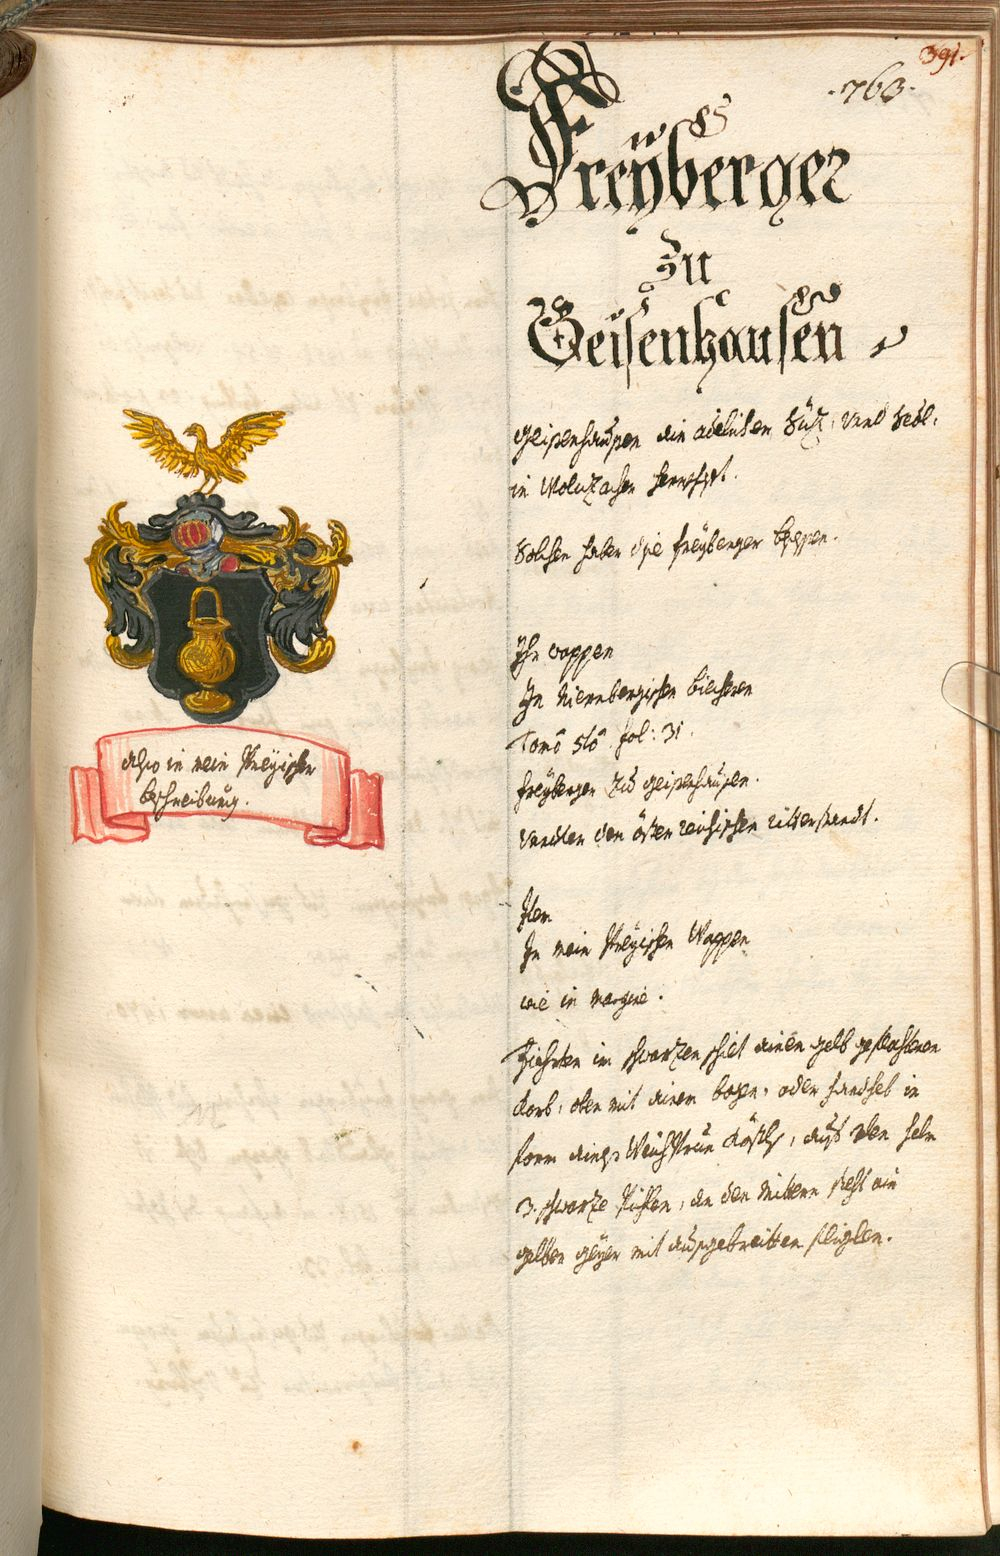 391.
.763.
Freÿberger
zu
Geisenhausen
Geisenhausen ein adelicher Siz, vnd
in Wolnzacher herrschafft.
Solchen haben die Freyberger besessen.
Ihr wappen
In Niernbergischen biechern
Tomo 5to fol: 31.
Freyberger zu Geisenhausen.
vndter den österreichischen ritterstandt.
Item
In mein Preyischen Wappen
wie in margine.
Fiehrten im schwarzen schilt einen gelb geflochtenen
Korb, oben mit einem bogen, oder handheb in
form eines Weichprun Kössls, auf den helm
3. schwarze, in der mitten steht ein
gelber geyer mit ausgebreitten fliglen.
Also in mein Preyischen
beschreibung.